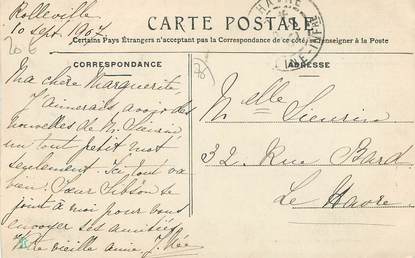 Rolleville
10 sept. 1907
CARTE POSTALE
Certains Pays Étrangers n'acceptant pas la Correspondance de ce côté, se renseigner à la Poste
CORRESPONDANCE
ADRESSE
Ma chère Marguerite,
J'aimerais avoir des
nouvelles de M.
un tout petit mot
seulement. Ici tout va
bien. Sœur
se
joint à moi pour vous
envoyer ses amitiés
Votre vieille amie J.
Melle Sieurin
32, Rue Bard
Le Havre